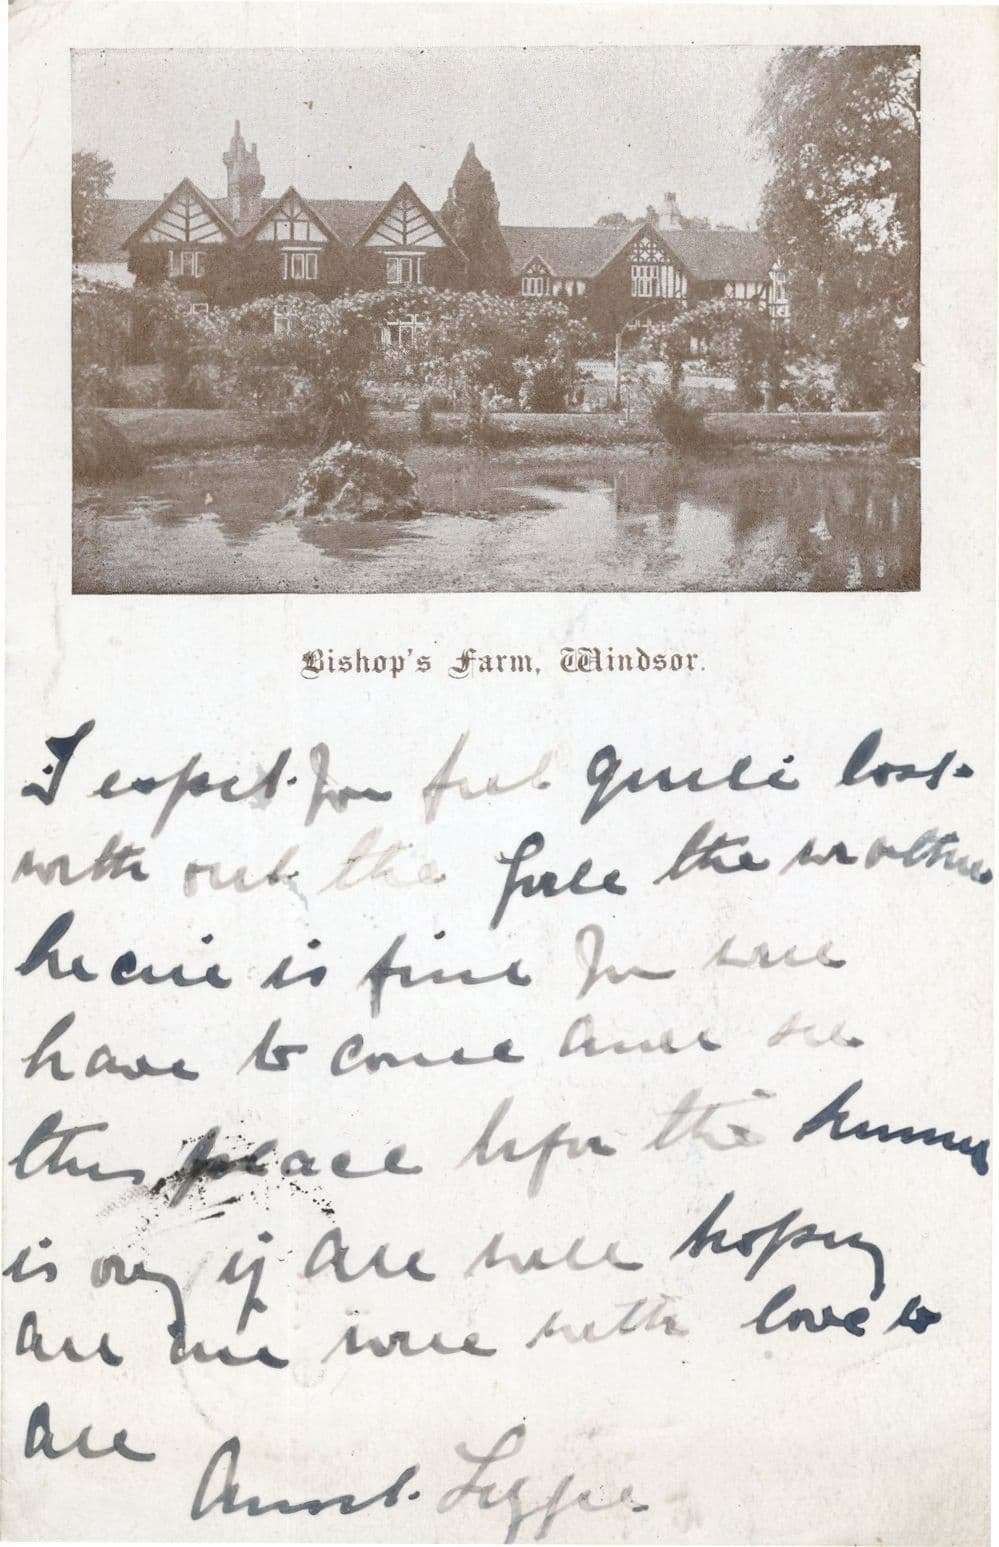 Bishop's Farm, Windsor.
I expect you feel quite lost
with out the the
here is fine you will
have to come and see
this place befor the summer
is over if all well hoping
all are well with love to
all
Aunt Lizzie